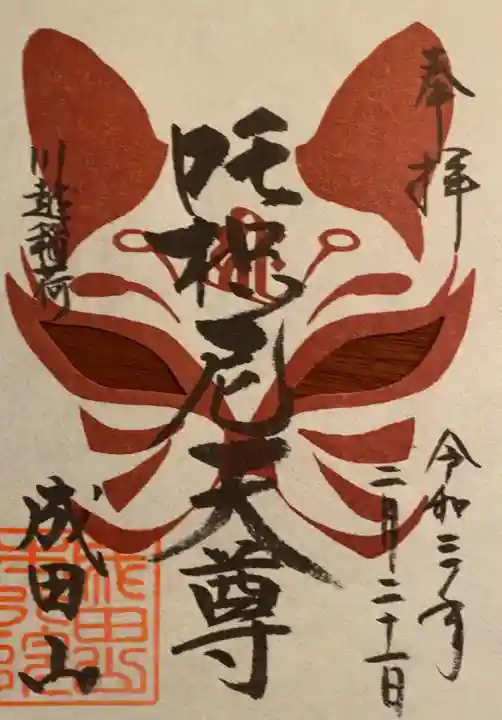 奉拝
令和三年
二月二十一日
吒枳尼天尊
川越稲荷
成田山